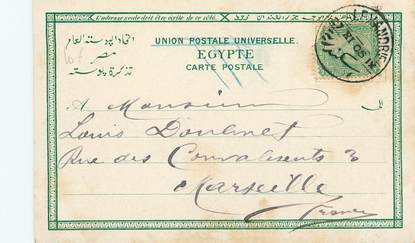 L'adresse seule doit être écrite de ce côté.
UNION POSTALE UNIVERSELLE.
اتحاد البوسته العام
EGYPTE
مصر
CARTE POSTALE
تذكرة بوسته
ALEXANDRIE
XI 05
A Monsieur
الى
Louis
Rue des Convalescents 3
Marseille
France